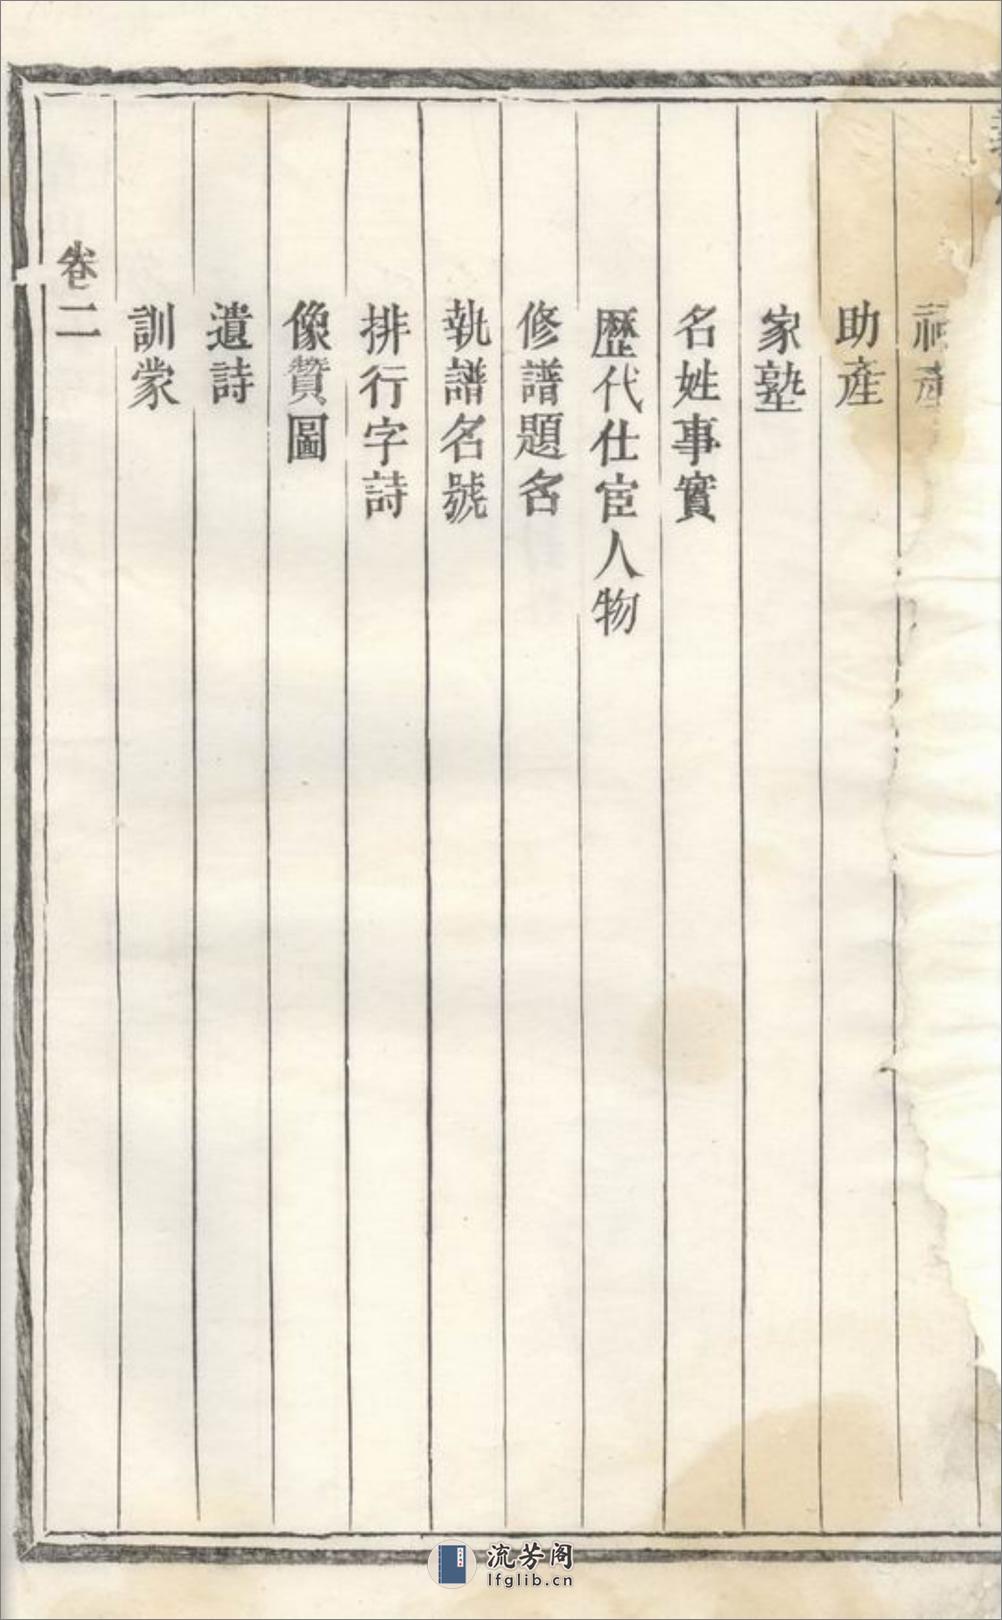 祠產
助產
家塾
名姓事實
歷代仕宦人物
修譜題名
執譜名號
排行字詩
像贊圖
遺詩
訓蒙
卷二
流芳阁
lfglib.cn